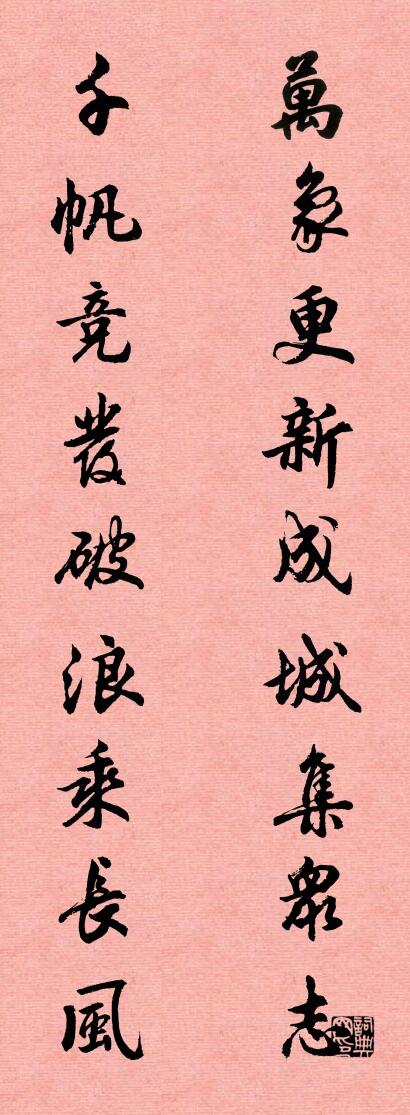 萬象更新成城集衆志
千帆競發破浪乘長風